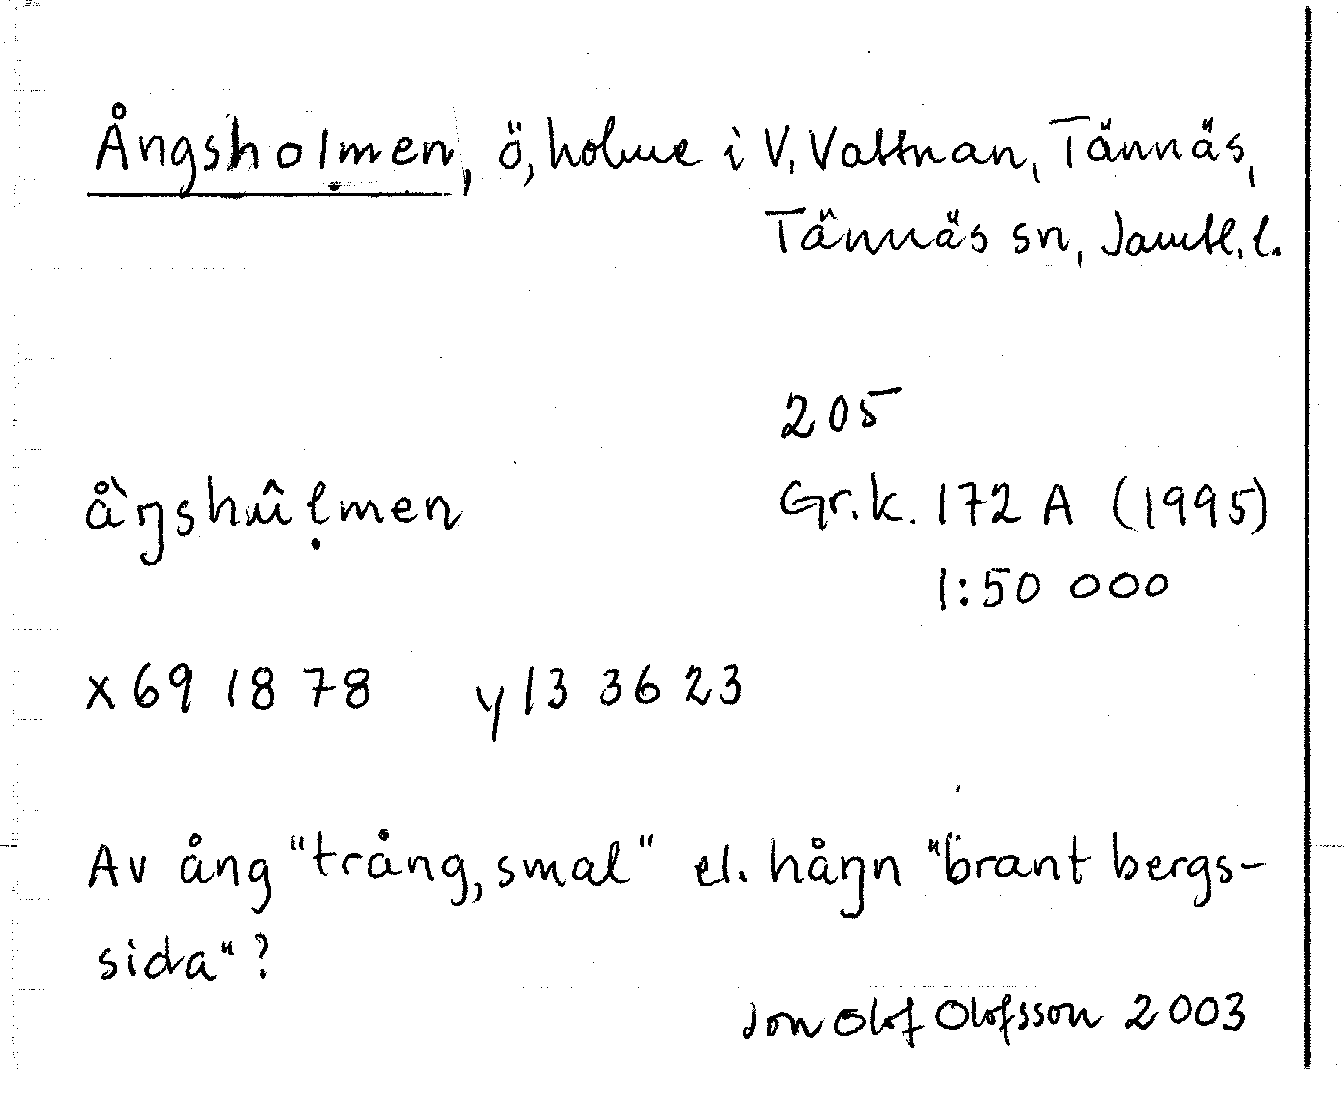 Ångshoḷmen, ö, holme i V. Vattnan, Tännäs,
Tännäs sn, Jämtl. l.
205
å̀ŋshûḷmen
Gr.k. 172 A (1995)
1:50 000
x 69 18 78 y 13 36 23
Av ång "trång, smal" el. håŋn "brant bergs-
sida"?
Jon Olof Olofsson 2003